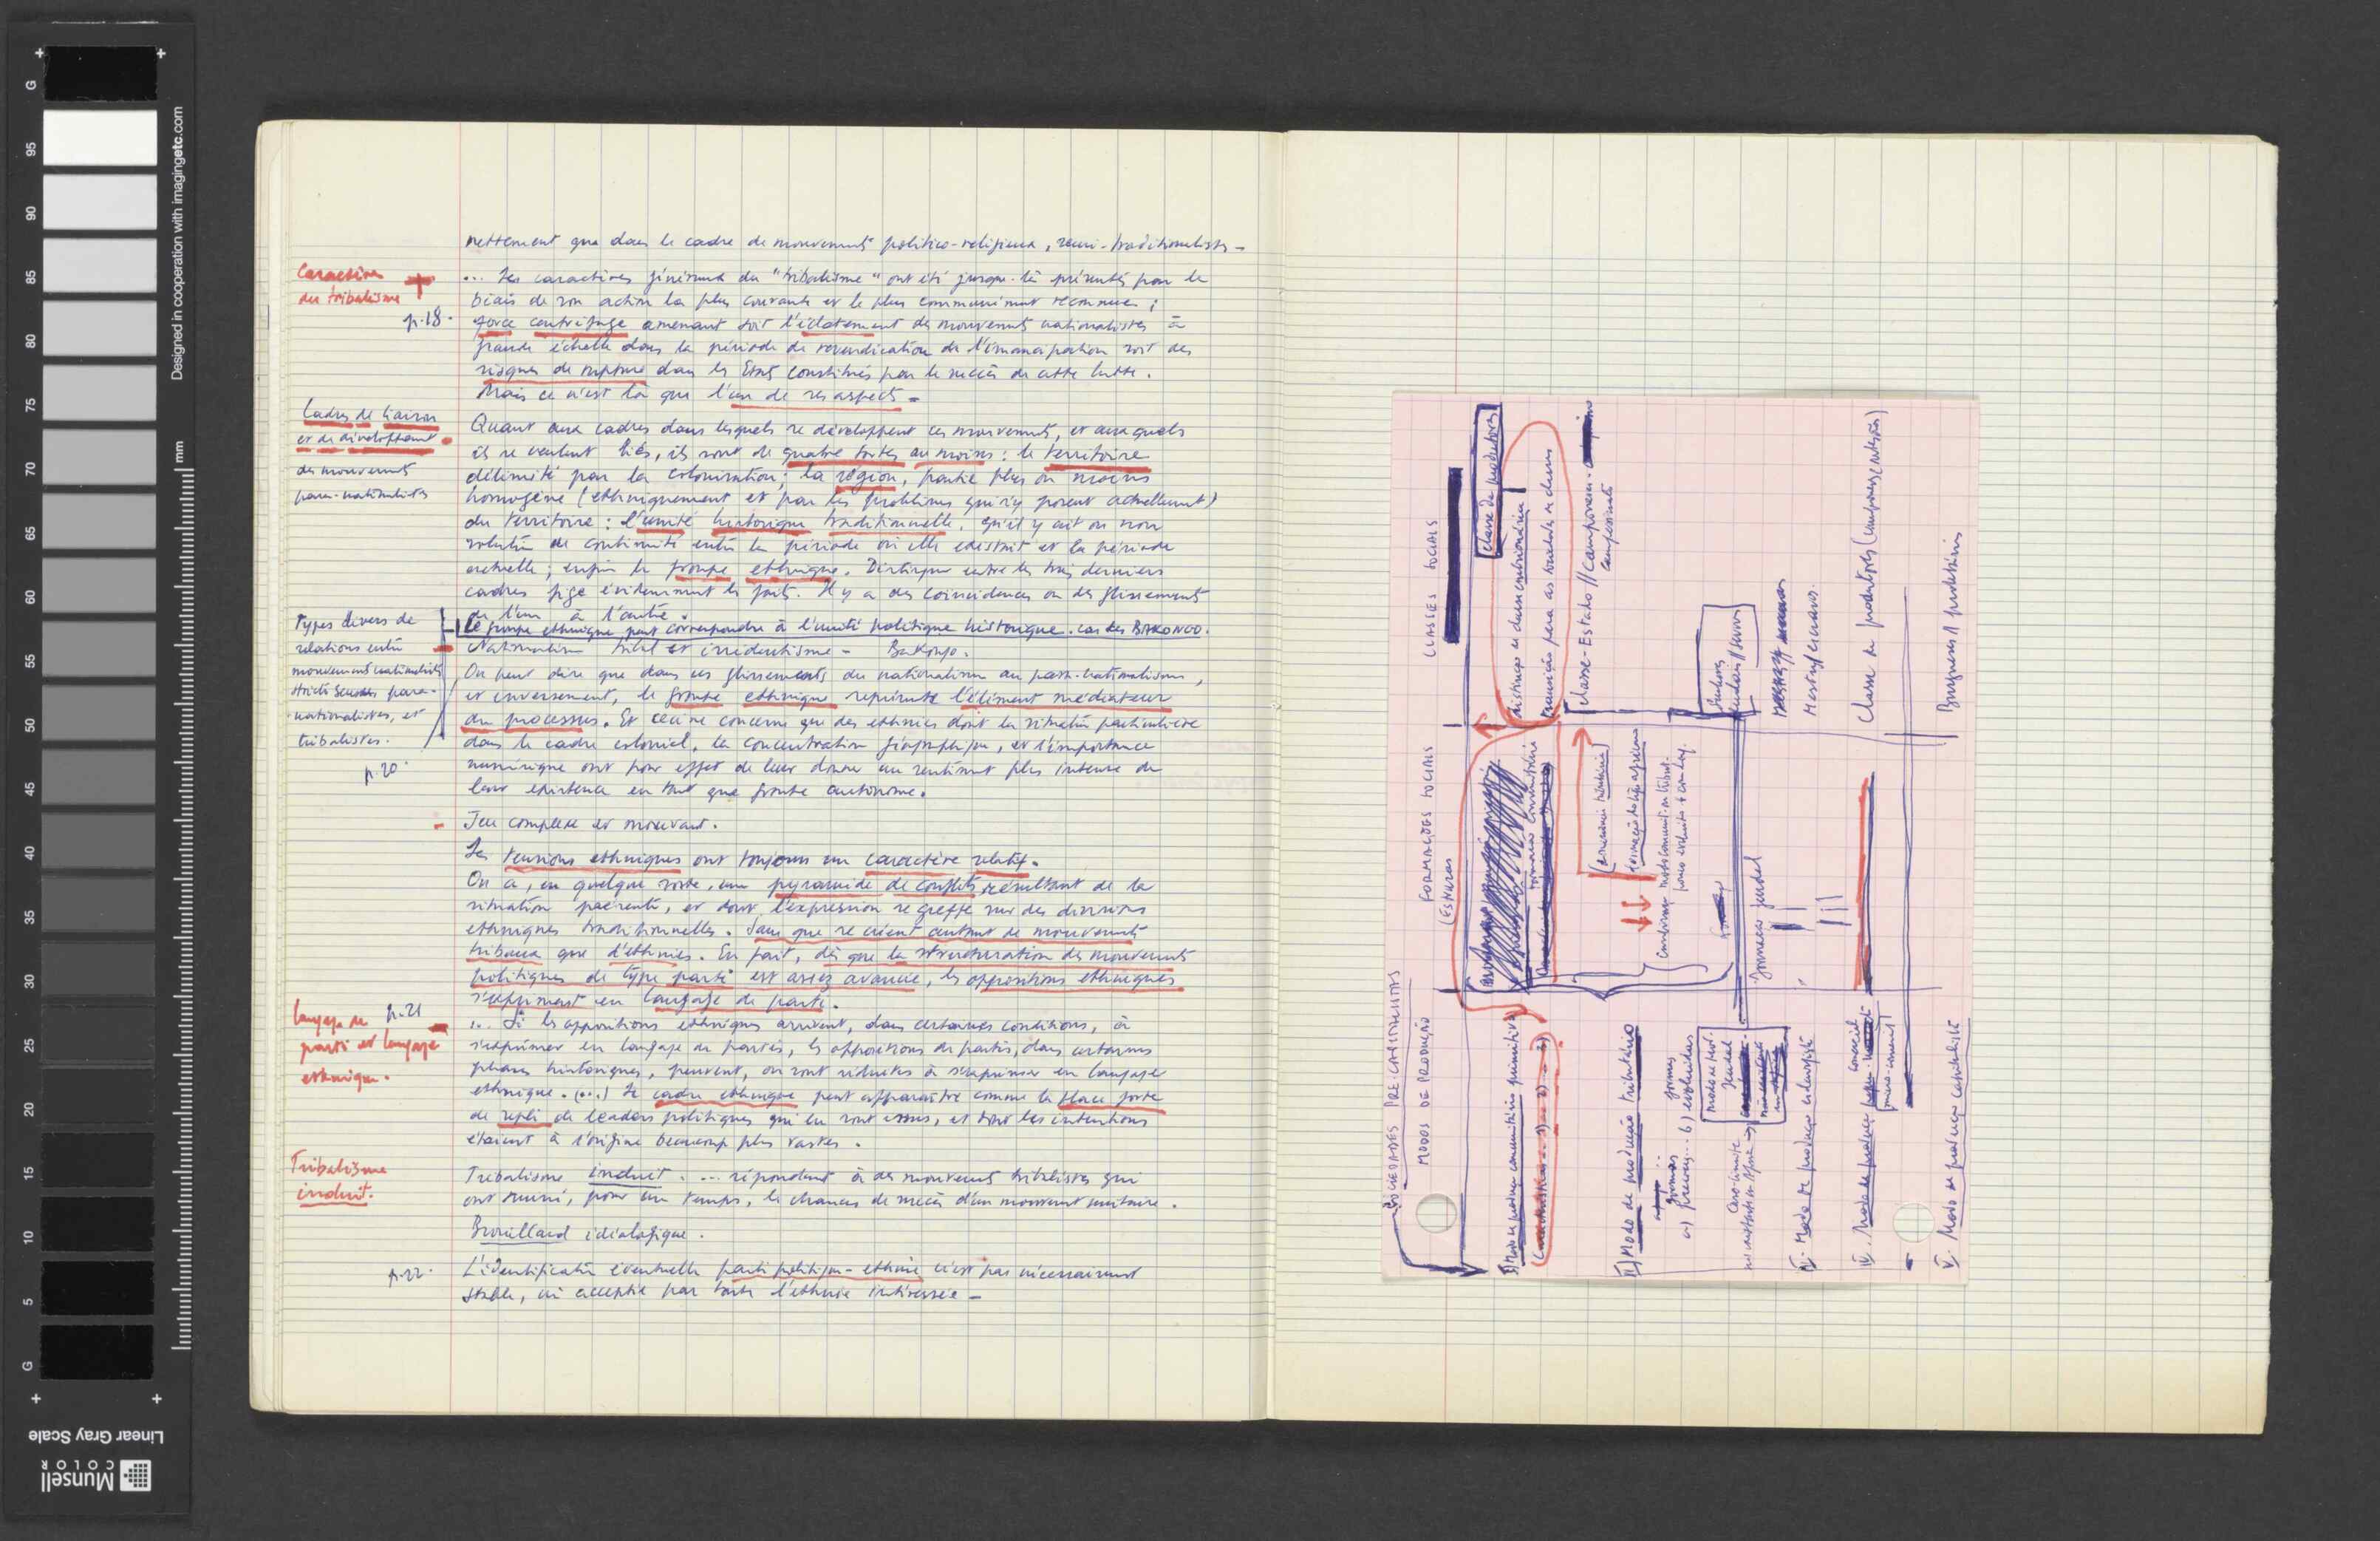 nettement que dans le cadre de mouvements politico-religieux, semi-traditionalistes -
Caractères
du tribalisme +
p.18.
... Les caractères généraux du "tribalisme" ont été jusque-là présentés par le
biais de son action la plus courante et le plus communément reconnue ;
force centrifuge amenant soit l'éclatement des mouvements nationalistes à
grande échelle dans la période de revendication de l'émancipation soit des
risques de rupture dans les Etats constitués par le succès de cette lutte.
Mais ce n'est là que l'un de ses aspects -
Cadres de liaison
et de développement
des mouvements
para-nationalistes
Quant aux cadres dans lesquels se développent ces mouvements, et auxquels
ils se veulent liés, ils sont de quatre sortes au moins : le territoire
délimité par la colonisation; la région, partie plus ou moins
homogène (ethniquement et par les problèmes qui s'y posent actuellement)
du territoire : l'unité historique traditionnelle, qu'il y ait ou non
solution de continuité entre la période où elle existait et la période
actuelle ; enfin le groupe ethnique. Distinguer entre les trois derniers
cadres fige évidemment les faits. Il y a des coincidences ou des glissements
de l'un à l'autre.
Types divers de
relations entre
mouvements nationalistes
stricto sensu, para-
nationalistes, et
tribalistes.
p.20.
Le groupe ethnique peut correspondre à l'unité politique historique. Cas des BAKONGO.
Nationalisme tribal et irrédentisme - Bakongo.
On peut dire que dans ces glissements du nationalisme au para-nationalisme,
et inversement, le groupe ethnique représente l'élément médiateur
du processus. Et ceci ne concerne que des ethnies dont la situation particulière
dans le cadre colonial, la concentration géographique, et l'importance
numérique ont pour effet de leur donner un sentiment plus intense de
leur existence en tant que groupe autonome.
- Jeu complexe et mouvant.
Les tensions ethniques ont toujours un caractère relatif.
On a, en quelque sorte, une pyramide de conflits résultant de la
situation présente, et dont l'expression se greffe sur des divisions
ethniques traditionnelles. Sans que se créent autant de mouvements
tribaux que d'ethnies. En fait, dès que la structuration des mouvements
politiques de type parti est assez avancée, les oppositions ethniques
s'expriment en langage de parti.
Langage de p.21
parti et langage
ethnique.
... Si les oppositions ethniques arrivent, dans certaines conditions, à
s'exprimer en langage de partis, les oppositions de partis, dans certaines
phases historiques, peuvent, ou sont réduites à s'exprimer en langage
ethnique. (...) Le cadre ethnique peut apparaître comme la place forte
de repli de leaders politiques qui en sont issus, et dont les intentions
étaient à l'origine beaucoup plus vastes.
Tribalisme
induit.
Tribalisme induit : ... répondant à des mouvements tribalistes qui
ont ruiné, pour un temps, les chances de succès d'un mouvement unitaire.
Brouillard idéologique.
p.22.
L'identification éventuelle parti politique - ethnie n'est pas nécessairement
stable, ni acceptée par toute l'ethnie intéressée -
SOCIEDADES PRE-CAPITALISTAS
MODOS DE PRODUÇÃO
FORMAÇÕES SOCIAIS
CLASSES SOCIAIS
I) Modo de produção comunitário primitivo
Classe de produtores
II) Modo de produção tributário
a) formas precoces... b) formas evoluídas
Classe-Estado // camponeses
campesinato
formação do tipo africano
modo de prod. feudal
Senhores
feudais // servos
III. Modo de produção esclavagista
Mestres // escravos.
IV. Modo de produção
comercial
Classe de produtores (camponeses e artesãos)
V. Modo de produção capitalista
Burgueses // proletários
Designed in cooperation with imagingetc.com
mm
G 95 90 85 80 75 70 65 60 55 50 45 40 35 30 25 20 15 10 5 G
Munsell
COLOR
Linear Gray Scale